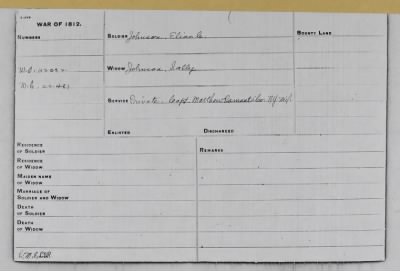 WAR OF 1812.
NUMBERS
SOLDIER Johnson,
BOUNTY LAND
WIDOW Johnson, Sally
W.O.
W.C.
SERVICE Private Capt. Matthew Co. NY Mil.
ENLISTED
DISCHARGED
RESIDENCE
OF SOLDIER
REMARKS
RESIDENCE
OF WIDOW
MAIDEN NAME
OF WIDOW
MARRIAGE OF
SOLDIER AND WIDOW
DEATH
OF SOLDIER
DEATH
OF WIDOW